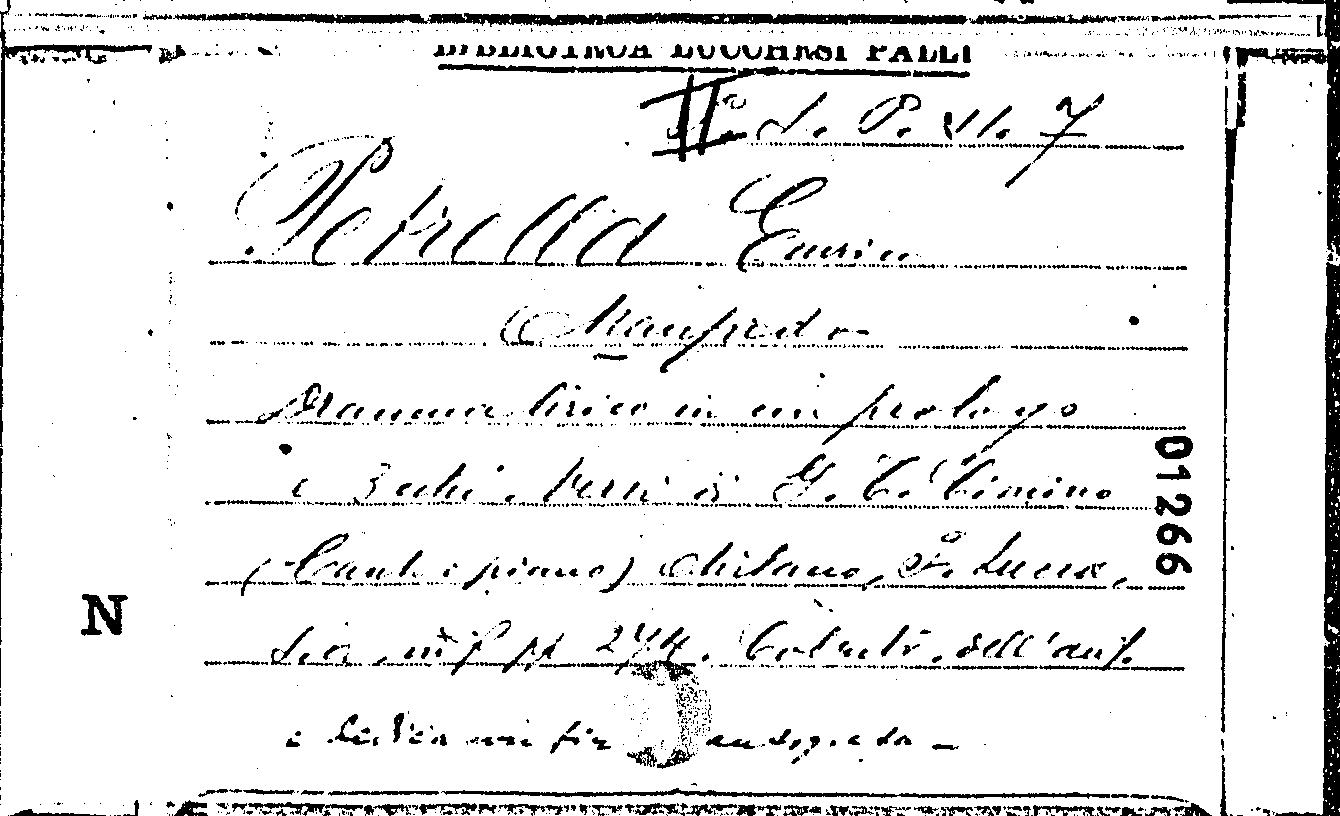 BIBLIOTECA LUCCHESI PALLI
II L. P. VI. 7
Petrella Enrico
Manfredo
Dramma lirico in un prologo
e 3 atti. Versi di G. T. Cimino
(Canto e piano) Milano, F. Lucca,
s.a. in f pp 274. Col ritr. dell'aut.
e autografa
01266
N